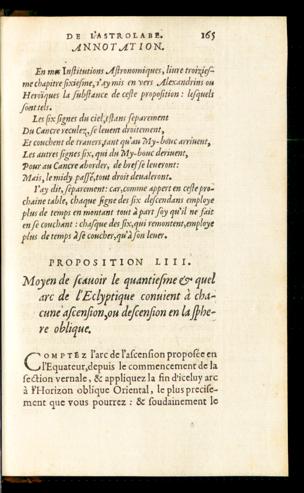 DE L'ASTROLABE. 165
ANNOTATION.
En mes Institutions Astronomiques, liure troizies-
me chapitre sixiesme, i'ay mis en vers Alexandrins ou
Heroïques la substance de ceste proposition: lesquels
sont tels.
Les six signes du ciel, estans separement
Du Cancre reculez, se leuent droitement,
Et couchent de trauers, tant qu'au My-bouc arriuent,
Les autres signes six, qui du My-bouc deriuent,
Pour au Cancre aborder, de bref se leueront:
Mais, le midy passé, tout droit deualeront.
I'ay dit, separement: car, comme appert en ceste pro-
chaine table, chaque signe des six descendans employe
plus de temps en montant tout à part soy qu'il ne fait
en se couchant: chasque des six, qui remontent, employe
plus de temps à se coucher, qu'à son leuer.
PROPOSITION LIII.
Moyen de scauoir le quantiesme & quel
arc de l'Eclyptique conuient à cha-
cune ascension, ou descension en la sphe-
re oblique.
COMPTEZ l'arc de l'ascension proposée en
l'Equateur, depuis le commencement de la
section vernale, & appliquez la fin d'iceluy arc
à l'Horizon oblique Oriental, le plus precise-
ment que vous pourrez: & soudainement le